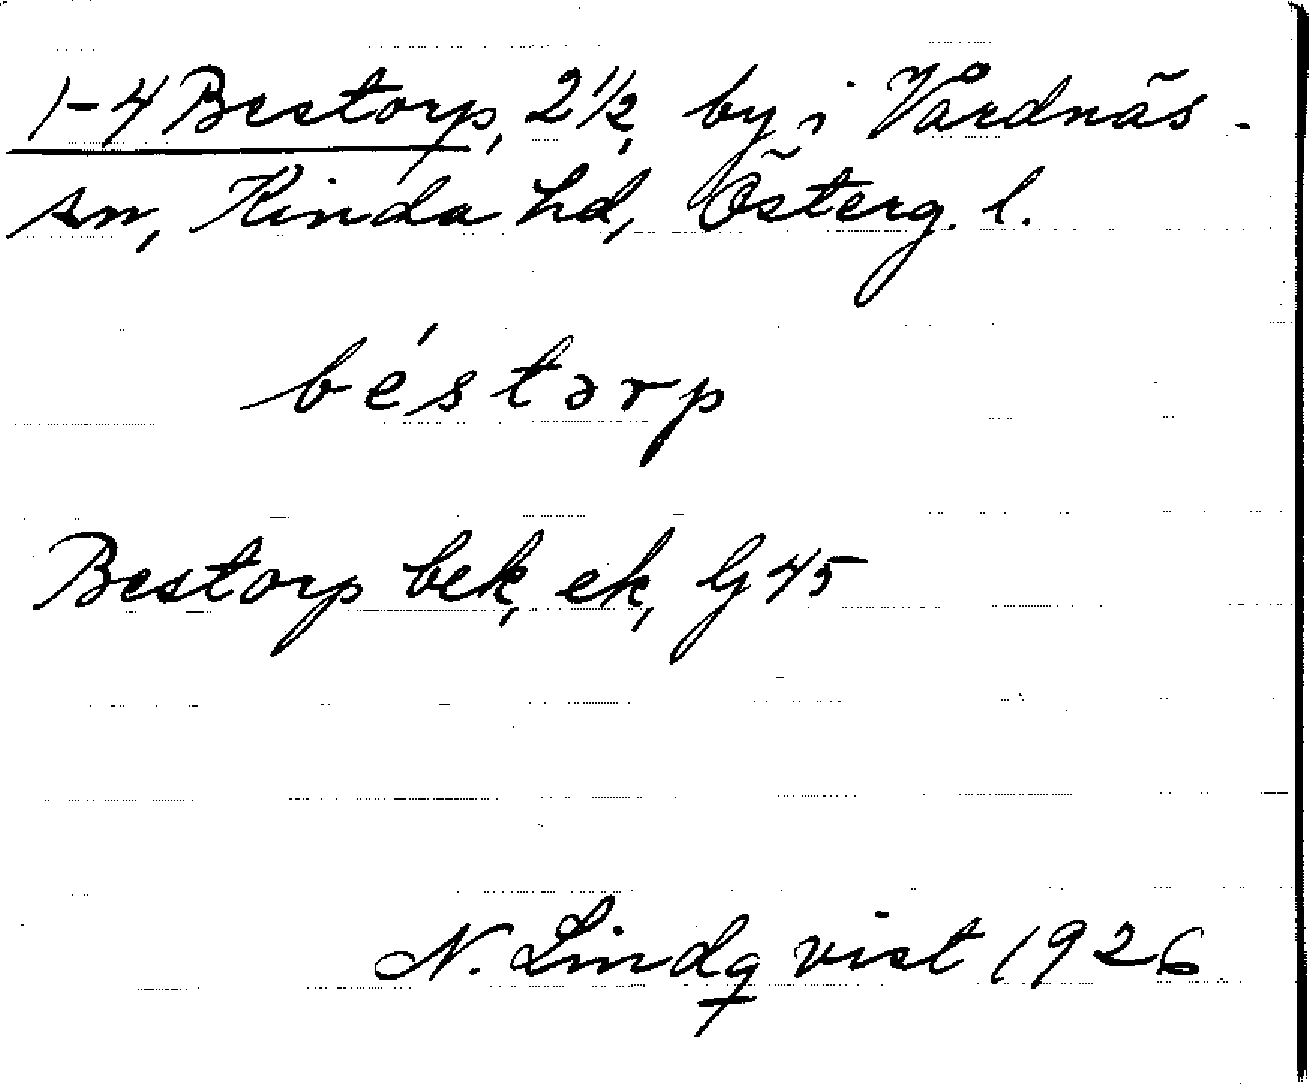 1-4 Bestorp, 2 1/2, by i Vårdnäs
sn, Kinda hd, Österg. l.
béstərp
Bestorp bek, ek, G 45
N. Lindqvist 1926